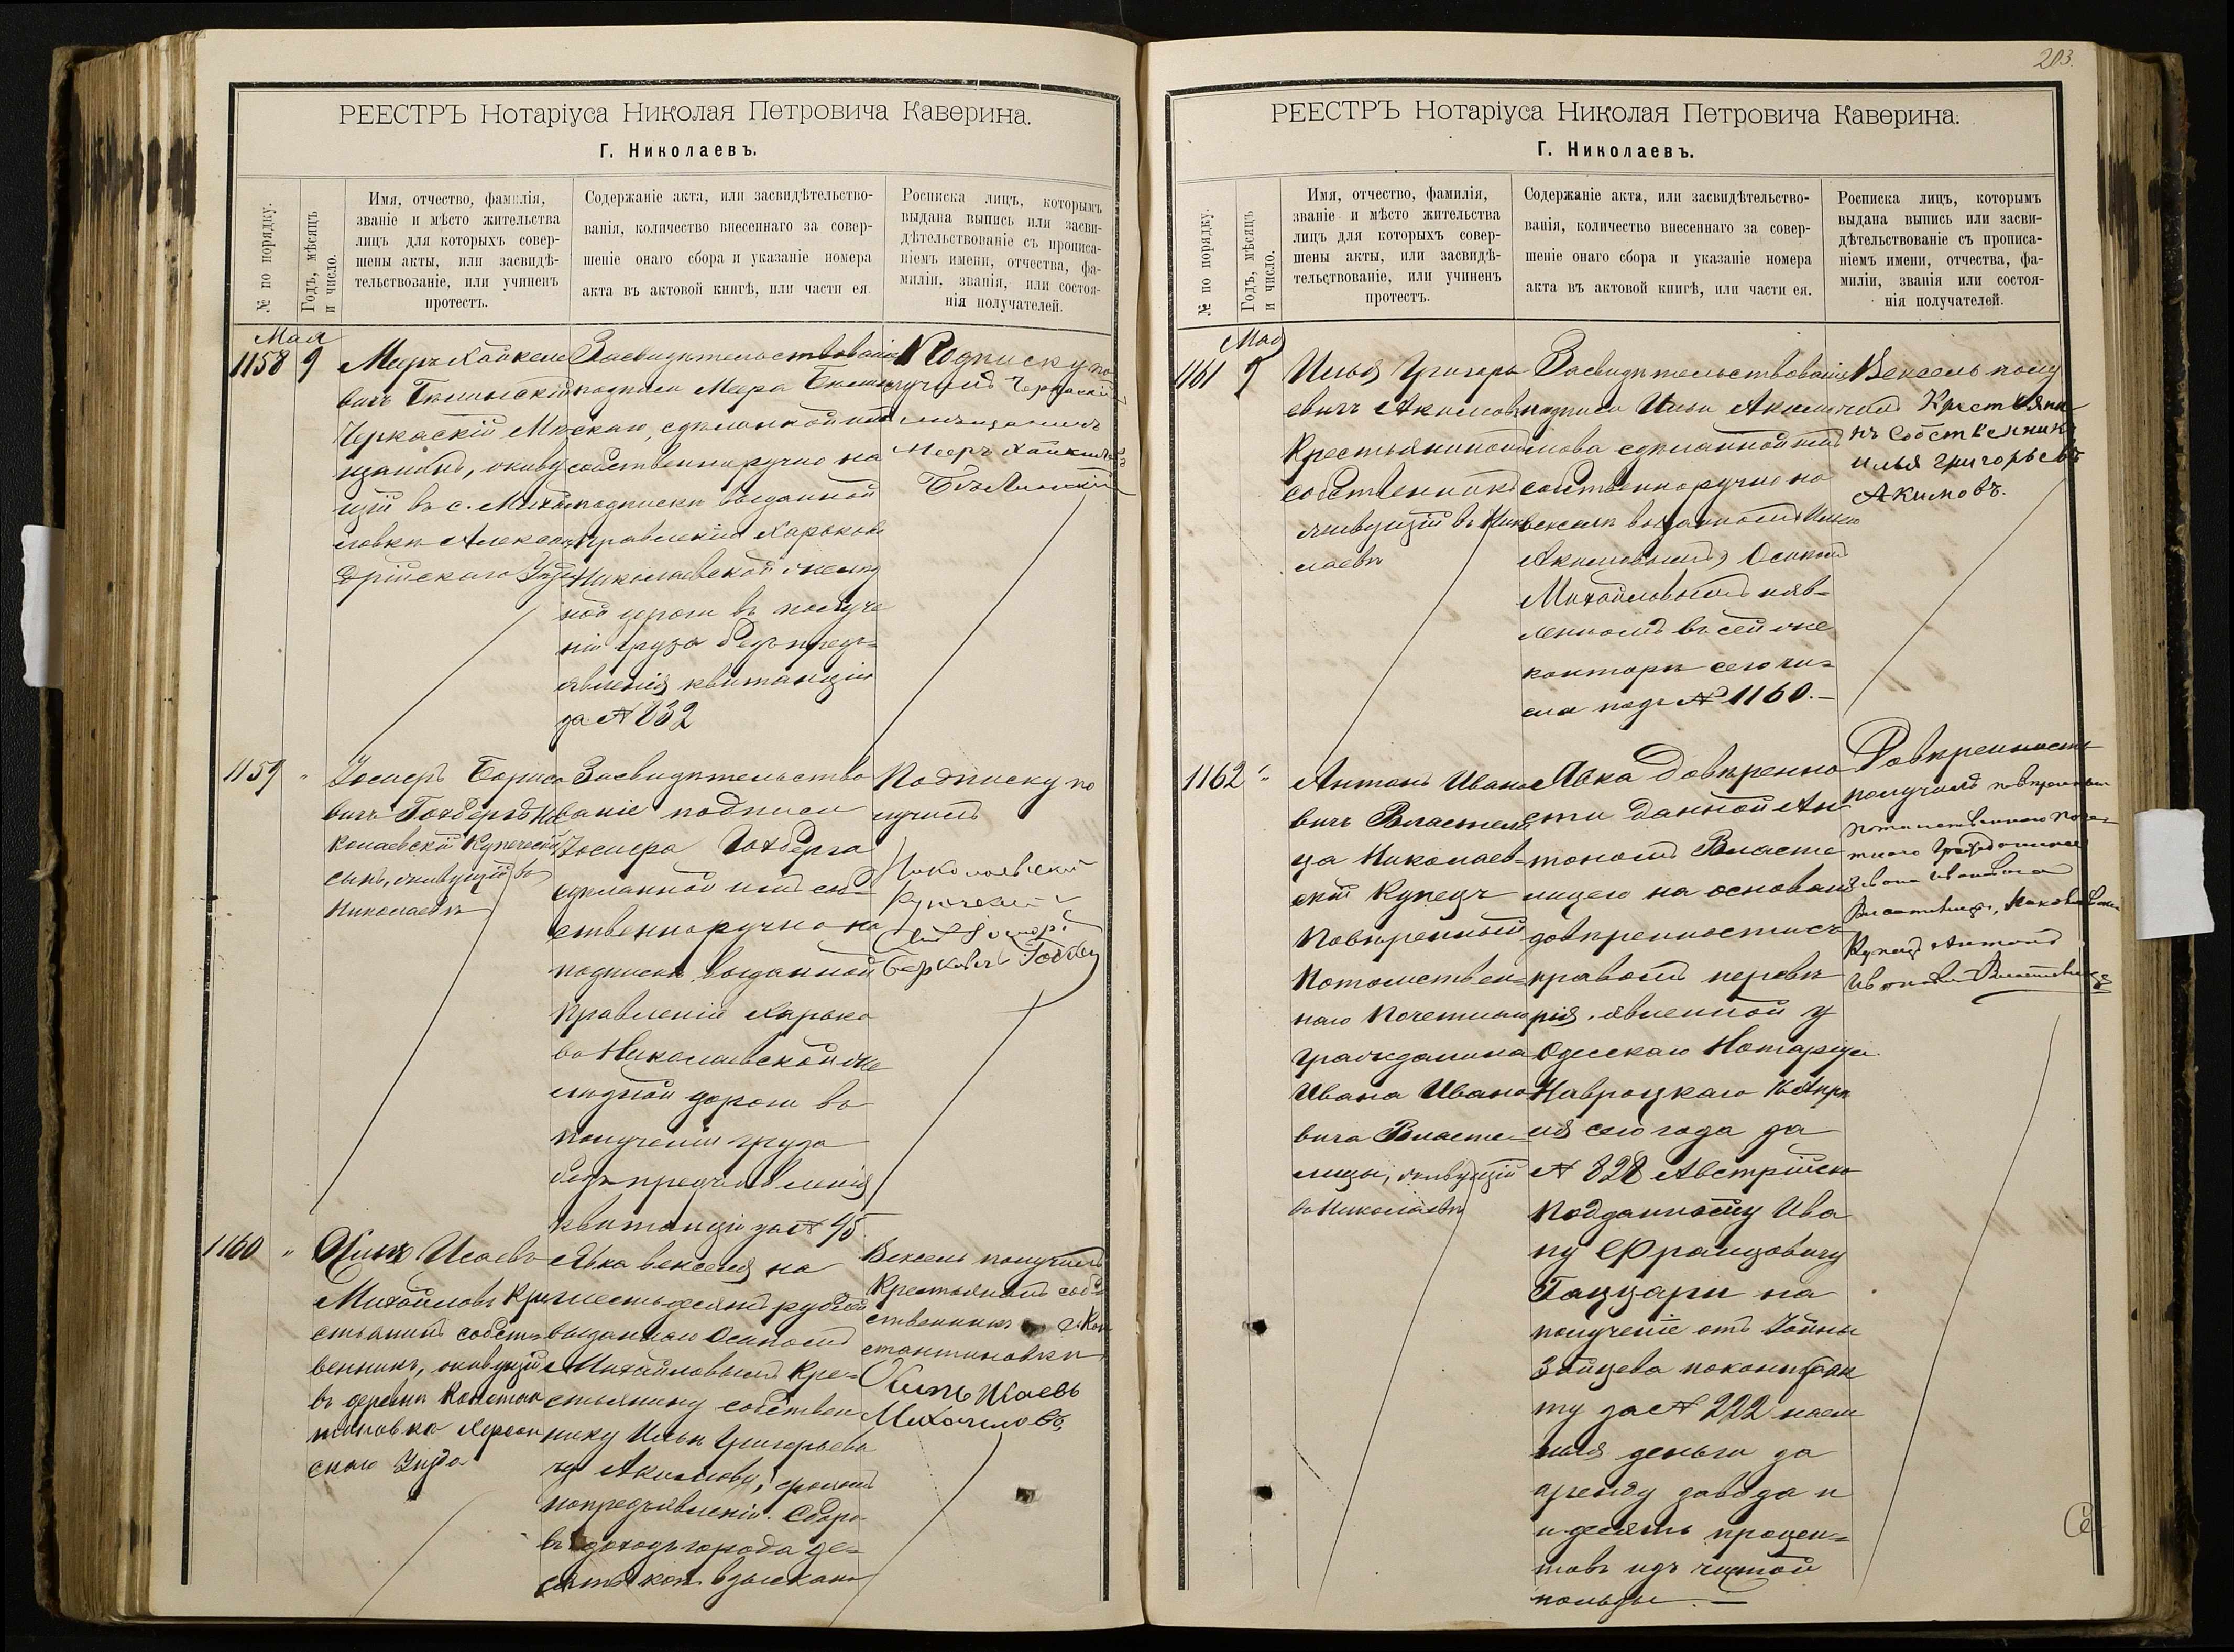 РЕЕСТРЪ Нотаріуса Николая Петровича Каверина.
Г. Николаевъ.
№ по порядку.
Годъ, мѣсяцъ
и число.
Имя, отчество, фамилія,
званіе и мѣсто жительства
лицъ для которыхъ совер-
шены акты, или засвидѣ-
тельствованіе, или учиненъ
протестъ.
Содержаніе акта, или засвидѣтельство-
ванія, количество внесеннаго за совер-
шеніе онаго сбора и указаніе номера
акта въ актовой книгѣ, или части ея.
Росписка лицъ, которымъ
выдана выпись или засви-
дѣтельствованіе съ прописа-
ніемъ имени, отчества, фа-
миліи, званія, или состоя-
нія получателей.
Мая
1158 9
Меръ Хайкели
вичъ
Черкаскій Мѣ
щанинъ, живу
щій въ с. Михай
ловкѣ Алексан
дрійскаго Уѣз
Засвидѣтельствованіе
подписи Меера
скаго, сдѣланной имъ
собственноручно на
подпискѣ выданной
Правленію Харьково
Николаевской желѣз
ной дороги въ получе
ніи груза безъ предъ=
явленія квитанціи
за № 832
Подписку по
лучилъ Черкаскій
мѣщанинъ
Мееръ Хайкилев
1159 "
Іосифъ Борисо
вичъ Гохбергъ Ни
колаевскій Купеческій
сынъ, живущій въ
Николаевѣ
Засвидѣтельство
ваніе подписи
Іосифа Гохберга
сдѣланной имъ соб=
ственноручно на
подпискѣ выданной
Правленію Харько
во Николаевской же
лѣзной дороги въ
полученіи груза
безъ предъявленія
квитанціи за № 45
Подписку по
лучилъ
Николаевскій
Купеческій
Берковичъ
1160 "
Осипъ Исаевъ
Михайловъ Кре
стьянинъ собст=
венникъ, живущій
въ деревнѣ Констан
тиновка Херсон
скаго Уѣзда
Явка векселя на
шестьдесятъ рублей
выданнаго Осипомъ
Михайловымъ Кре=
стьянину собствен
нику Ильи Григорьеви
чу Акимову, срокомъ
по предъявленіи. Сбора
въ доходъ города де=
сять коп. взыскано
Вексель получилъ
Крестьянинъ соб=
ственникъ Кон
стантиновки
Осипъ Исаевъ
Михаиловъ
203.
РЕЕСТРЪ Нотаріуса Николая Петровича Каверина.
Г. Николаевъ.
№ по порядку.
Годъ, мѣсяцъ
и число.
Имя, отчество, фамилія,
званіе и мѣсто жительства
лицъ для которыхъ совер-
шены акты, или засвидѣ-
тельствованіе, или учиненъ
протестъ.
Содержаніе акта, или засвидѣтельство-
ванія, количество внесеннаго за совер-
шеніе онаго сбора и указаніе номера
акта въ актовой книгѣ, или части ея.
Росписка лицъ, которымъ
выдана выпись или засви-
дѣтельствованіе съ прописа-
ніемъ имени, отчества, фа-
миліи, званія или состоя-
нія получателей.
Мая
1161 9
Илья Григорь
евичъ Акимовъ
Крестьянинъ
собственникъ
живущій въ Нико
лаевѣ
Засвидѣтельствованіе
подписи Ильи Аки
мова сдѣланной имъ
собственноручно на
векселѣ выданномъ Ильею
Акимовымъ, Осипомъ
Михайловымъ и яв=
ленномъ въ сей же
конторѣ сего чи=
сла подъ № 1160.—
Вексель полу
чилъ Крестьяни
нъ Собственникъ
Илья Григорьевъ
Акимовъ.
1162 "
Антонъ Ивано
вичъ Властели
ца Николаев=
скій Купецъ
Повѣренный
Потомствен=
наго Почетнаго
гражданина
Ивана Ивано
вича Власте
лицы, живущій
въ Николаевѣ
Явка Довѣренно
сти данной Ан
тономъ Власте
лицею на основаніи
довѣренности съ
правомъ передовѣ
рія, явленной у
Одесскаго Нотаріуса
Навроцкаго 16 Апрѣ
ля сего года за
№ 828 Австрійско
Подданному Ива
ну Францовичу
Гаццари на
полученіе отъ Іойны
Зайцева по контрак
ту за № 222 наем
ныя деньги за
аренду завода и
и десять процен=
товъ изъ чистой
пользы.—
Довѣренность
получилъ повѣренный
потомственнаго поче=
тнаго Гражданина
Ивана Ивановича
Властелицы, Николаевскій
Купецъ Антонъ
Ивановичъ Властелица